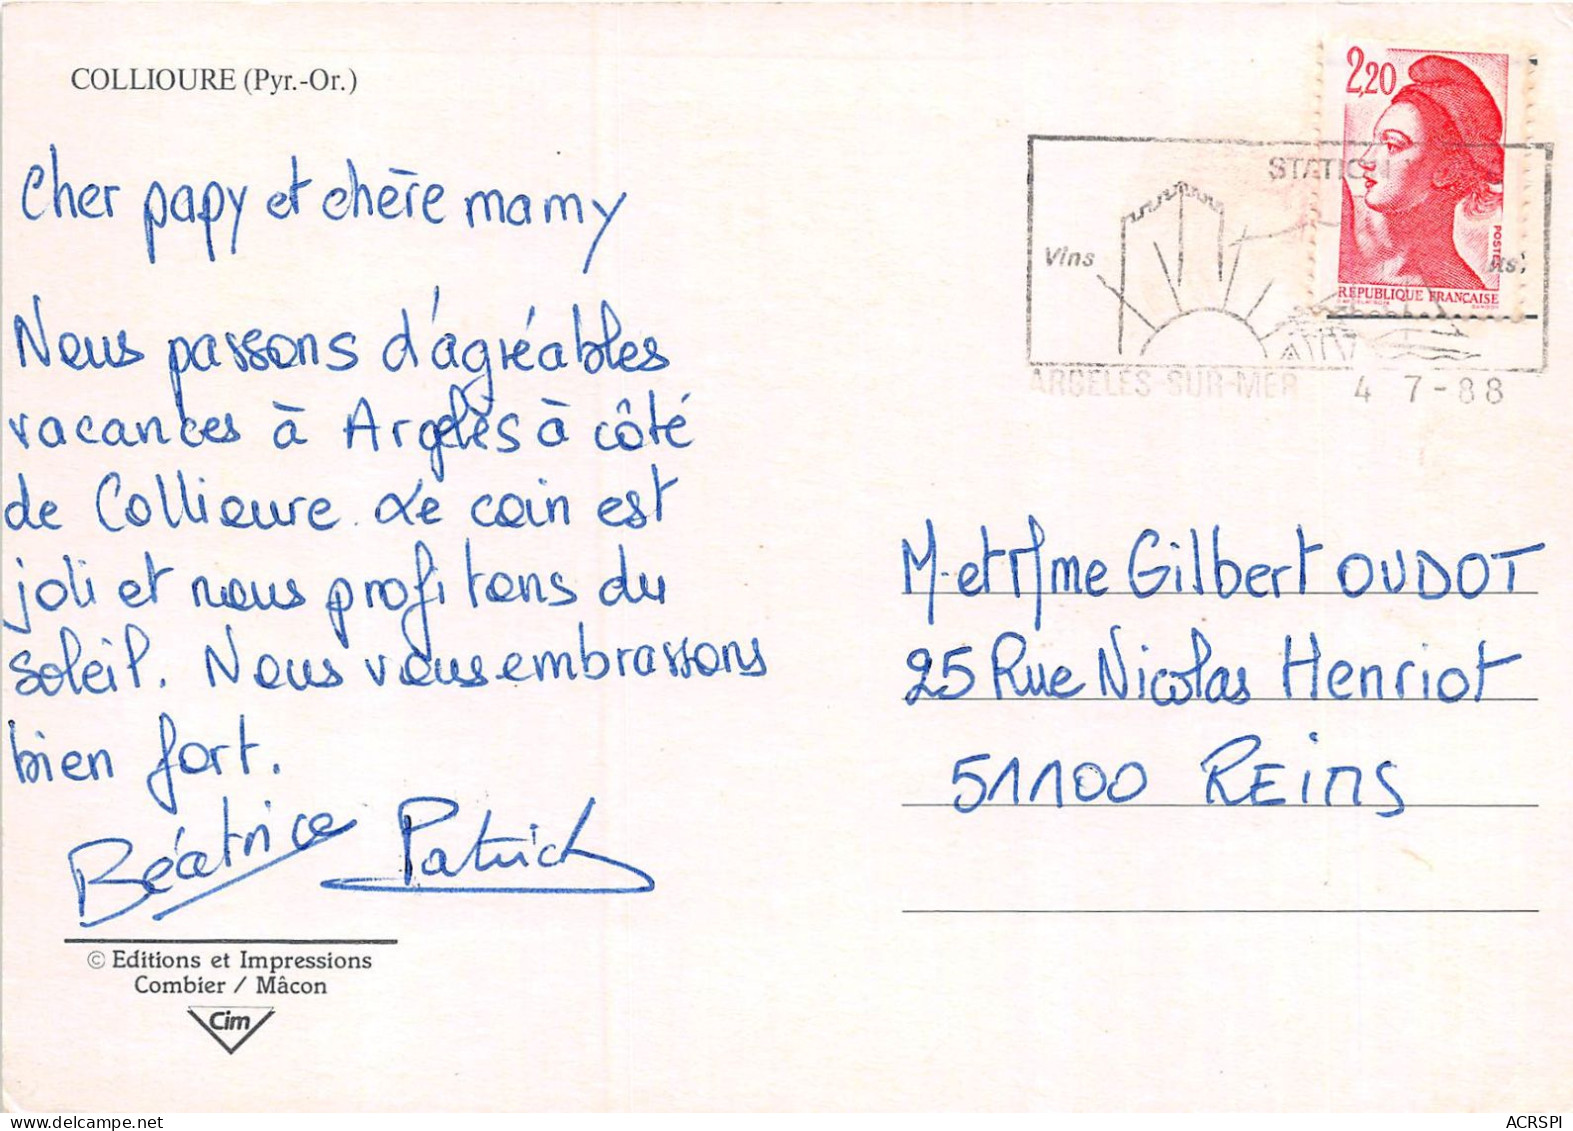 COLLIOURE (Pyr.-Or.)
Cher papy et chère mamy
Nous passons d'agréables
vacances à Argelès à côté
de Collioure. Le coin est
joli et nous profitons du
soleil. Nous vous embrassons
bien fort.
Béatrice Patrick
© Editions et Impressions
Combier / Mâcon
Cim
2,20
POSTES
REPUBLIQUE FRANÇAISE
STATION
Vins
ARGELES-SUR-MER 4 7-88
M. et Mme Gilbert OUDOT
25 Rue Nicolas Henriot
51100 REIMS
ACRSPI